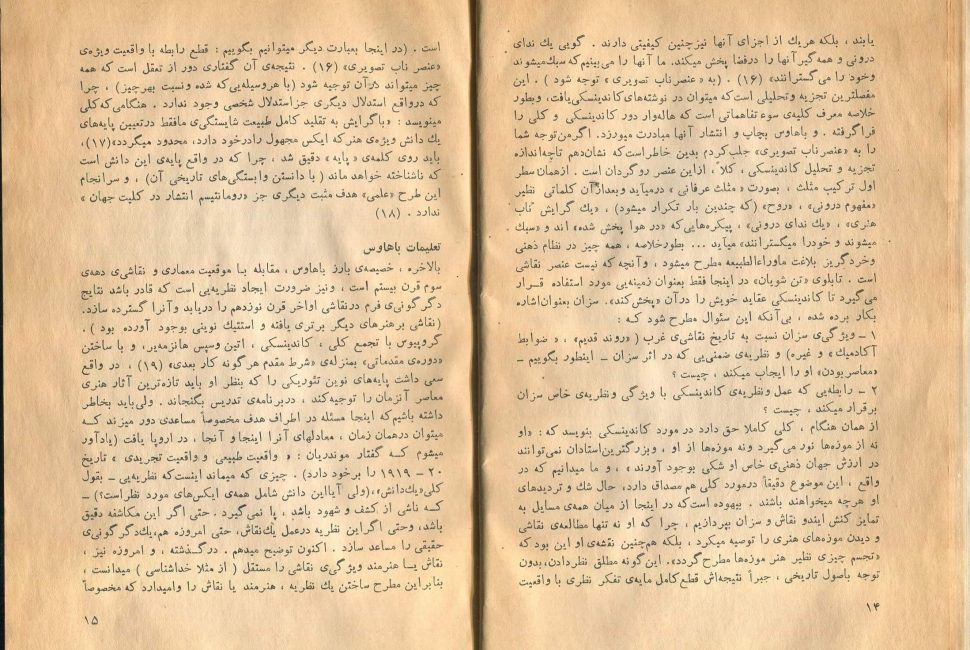 یابند ، بلکه هریك از اجزای آنها نیزچنین کیفیتی دارند . گویی یك ندای
درونی و همه گیر آنها را درفضا پخش میکند، ما آنها را می‌بینیم‌که سبك‌میشوند
وخود را می‌گسترانند» (۱۶) . (به «عنصر ناب تصویری» توجه شود ) . این
مفصلترین تجزیه وتحلیلی است‌که میتوان در نوشته‌های کاندینسکی‌یافت، وبطور
خلاصه معرف کلیه‌ی سوء تفاهماتی است که هاله‌وار دور کاندینسکی و کلی را
فراگرفته . و باهاوس بچاپ و انتشار آنها مبادرت میورزد. اگرمن‌توجه شما
را به «عنصر ناب تصویری» جلب‌کردم بدین خاطر است‌که نشان‌دهم تاچه‌اندازه
تجزیه و تحلیل کاندینسکی ، کلاً ، ازاین عنصر روگردان است . ازهمان سطر
اول ترکیب مثلث ، بصورت «مثلث عرفانی» درمیآید وبعدازآن کلماتی نظیر
«مفهوم درونی» ، «روح» (که چندین بار تکرار میشود) ، «یك گرایش ناب
هنری» ، «یك ندای درونی» ، پیکره‌هایی‌که «در هوا پخش شده» اند و «سبك
میشوند و خودرا میگسترانند» میآید ... بطورخلاصه ، همه چیز در نظام ذهنی
وخردگریز بلاغت ماوراءالطبیعه مطرح میشود ، وآنچه که نیست عنصر نقاشی
است . تابلوی «تن شویان» در اینجا فقط بعنوان زمینه‌یی مورد استفاده قـرار
می‌گیرد تا کاندینسکی عقاید خویش را درآن «پخش کند». سزان بعنوان‌اشاره
بکار برده شده ، بی‌آنکه این سئوال مطرح شود کـه :
۱ ـ ویژگی‌ی سزان نسبت به تاریخ نقاشی‌ی غرب («روند قدیم» ، « ضوابط
آکادمیك» و غیره) و نظریه‌ی ضمنی‌یی که در اثر سزان ـ اینطور بگوییم ـ
«معاصربودن» او را ایجاب میکند ، چیست ؟
۲ ـ رابطه‌یی که عمل ونظریه‌ی کاندینسکی با ویژگی ونظریه‌ی خاص سزان
برقرار میکند ، چیست ؟
از همان هنگام ، کلی کاملا حق دارد در مورد کاندینسکی بنویسد که : «او
نه از موزه‌ها نور می‌گیرد ونه موزه‌ها از او ، وبزرگترین‌استادان نمی‌توانند
در ارزش جهان ذهنی‌ی خاص او شکی بوجود آورند» ، و ما میدانیم که در
واقع ، این موضوع دقیقاً درمورد کلی هم مصداق دارد، حال شك و تردیدهای
او هرچه میخواهند باشند . بیهوده است‌که در اینجا از میان همه‌ی مسایل به
تمایز کنش ایندو نقاش و سزان بپردازیم ، چرا که او نه تنها مطالعه‌ی نقاشی
و دیدن موزه‌های هنری را توصیه میکرد ، بلکه هم‌چنین نقشه‌ی او این بود که
«تجسم چیزی نظیر هنر موزه‌ها مطرح گردد». این گونه مطلق نظردادن،بدون
توجه باصول تاریخی ، جبراً نتیجه‌اش قطع کامل مایه‌ی تفکر نظری با واقعیت
۱۴
است . (در اینجا بعبارت دیگر میتوانیم بگوییم : قطع رابطه با واقعیت ویژه‌ی
«عنصر ناب تصویری» (۱۶) . نتیجه‌ی آن گفتاری دور از تعقل است که همه
چیز میتواند درآن توجیه شود (با هروسیله‌یی‌که شده ونسبت بهرچیز) ، چرا
که درواقع استدلال دیگری جزاستدلال شخصی وجود ندارد . هنگامی‌که‌کلی
مینویسد : «باگرایش به تقلید کامل طبیعت شایستگی‌ی مافقط درتعیین پایه‌های
یك دانش ویژه‌ی هنر که ایکس مجهول رادرخود دارد، محدود میگردد»(۱۷)،
باید روی کلمه‌ی «پایه» دقیق شد ، چرا که در واقع پایه‌ی این دانش است
که ناشناخته خواهد ماند (با دانستن وابستگی‌های تاریخی آن) ، و سرانجام
این طرح «علمی» هدف مثبت دیگری جز «رومانتیسم انتشار در کلیت جهان»
ندارد . (۱۸)
تعلیمات باهاوس
بالاخره ، خصیصه‌ی بارز باهاوس ، مقابله بـا موقعیت معماری و نقاشی‌ی دهه‌ی
سوم قرن بیستم است ، ونیز ضرورت ایجاد نظریه‌یی است که قادر باشد نتایج
دگرگونی‌ی فرم درنقاشی اواخر قرن نوزدهم را دریابد وآنرا گسترده سازد.
(نقاشی برهنرهای دیگر برتری یافته و استتیك نوینی بوجود آورده بود ) .
گروپیوس با تجمع کلی ، کاندینسکی ، اتین وسپس هانزمه‌یر، و با ساختن
«دوره‌ی مقدماتی» بمنزله‌ی «شرط مقدم هرگونه کار بعدی» (۱۹) ، در واقع
سعی داشت پایه‌های نوین تئوریکی را که بنظر او باید تازه‌ترین آثار هنری
معاصر آنزمان را توجیه‌کند ، دربرنامه‌ی تدریس بگنجاند . ولی‌باید بخاطر
داشته باشیم‌که اینجا مسئله در اطراف هدف مخصوصاً مساعدی دور میزند کـه
میتوان درهمان زمان ، معادلهای آنرا اینجا و آنجا ، در اروپا یافت (یادآور
میشوم کـه گفتار موندریان : « واقعیت طبیعی و واقعیت تجریدی » تاریخ
۲۰ ـ ۱۹۱۹ را برخود دارد) . چیزی که میماند اینست‌که نظریه‌یی ـ بقول
کلی«یك‌دانش»،(ولی آیااین دانش شامل همه‌ی ایکس‌های مورد نظراست؟) ـ
کـه ناشی از کشف و شهود باشد ، پا نمی‌گیرد . حتی اگر این مکاشفه دقیق
باشد، وحتی اگراین نظریه درعمل یك‌نقاش، حتی امروزه هم،یك‌دگرگونی‌ی
حقیقی را مساعد سازد . اکنون توضیح میدهم . درگـذشته ، و امروزه نیز ،
نقاش یـا هنرمند ویژگی‌ی نقاشی را مستقل ( از مثلا خداشناسی ) میدانست ،
بنابراین مطرح ساختن یك نظریه ، هنرمند یا نقاش را وامیدارد که مخصوصاً
۱۵